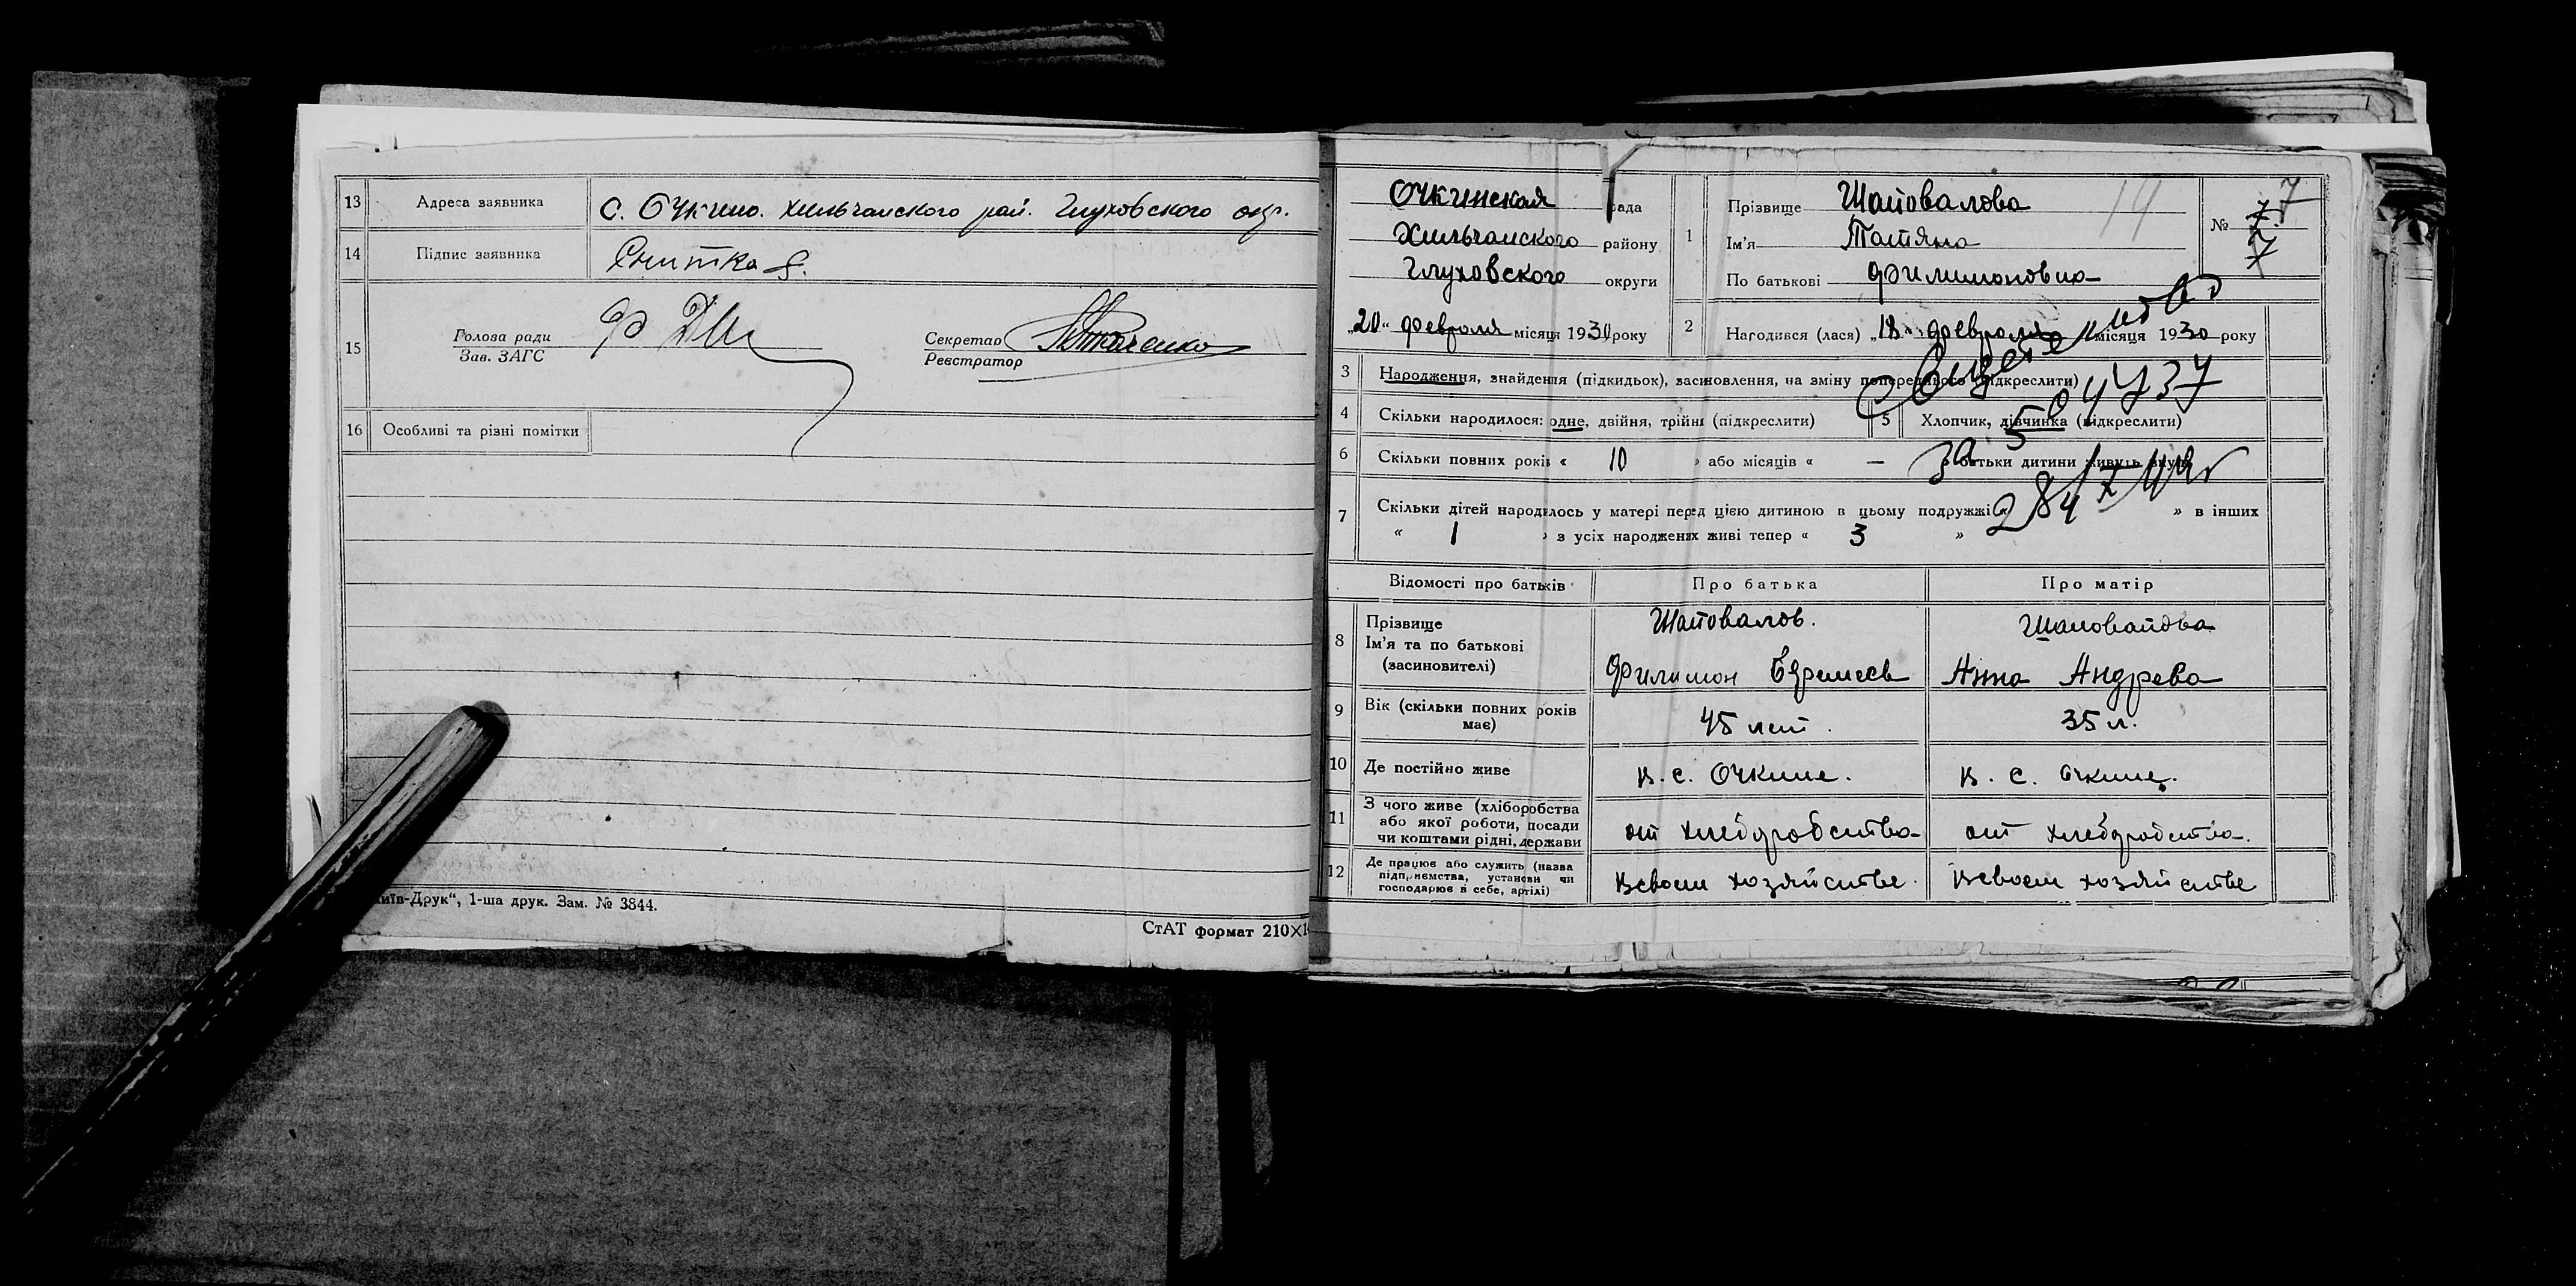 13 Адреса заявника с. Очкино. Хильчанского рай. Глуховского окр.
14 Підпис заявника
15 Голова ради
Зав. ЗАГС
Секретар
Реєстратор
16 Особливі та різні помітки
"Київ-Друк“, 1-ша друк. Зам. № 3844.
СтАТ формат 210×1
Очкинская рада
Хильчанского району
Глуховского округи
„20“ февраля місяця 1930 року
1 Прізвище Шаповалова
Ім'я Татяна
По батькові Филимоновна
14
№ 7
7
7
2 Народився (лася) „18“ февраля місяця 1930 року
3 Народження, знайдення (підкидьок), засиновлення, на зміну попереднього (підкреслити)
4 Скільки народилося: одне, двійня, трійня (підкреслити)
5 Хлопчик, дівчинка (підкреслити)
6 Скільки повних років « 10 » або місяців « — » батьки дитини живуть вкупі
7 Скільки дітей народилось у матері перед цією дитиною в цьому подружжі « » в інших
« 1 » з усіх народжених живі тепер « 3 »
Відомості про батьків Про батька Про матір
8 Прізвище
Ім'я та по батькові
(засиновителі)
Шаповалов.
Филимон Ефремов
Шаповалова
Анна Андрева
9 Вік (скільки повних років має) 45 лет. 35 л.
10 Де постійно живе в. с. Очкине. в. с. Очкине.
11 З чого живе (хліборобства
або якої роботи, посади
чи коштами рідні, держави
от хлеборобства от хлеборобства.
12 Де працює або служить (назва
підприємства, установи чи
господарює в себе, артілі)
всвоем хозяйстве. всвоем хозяйстве